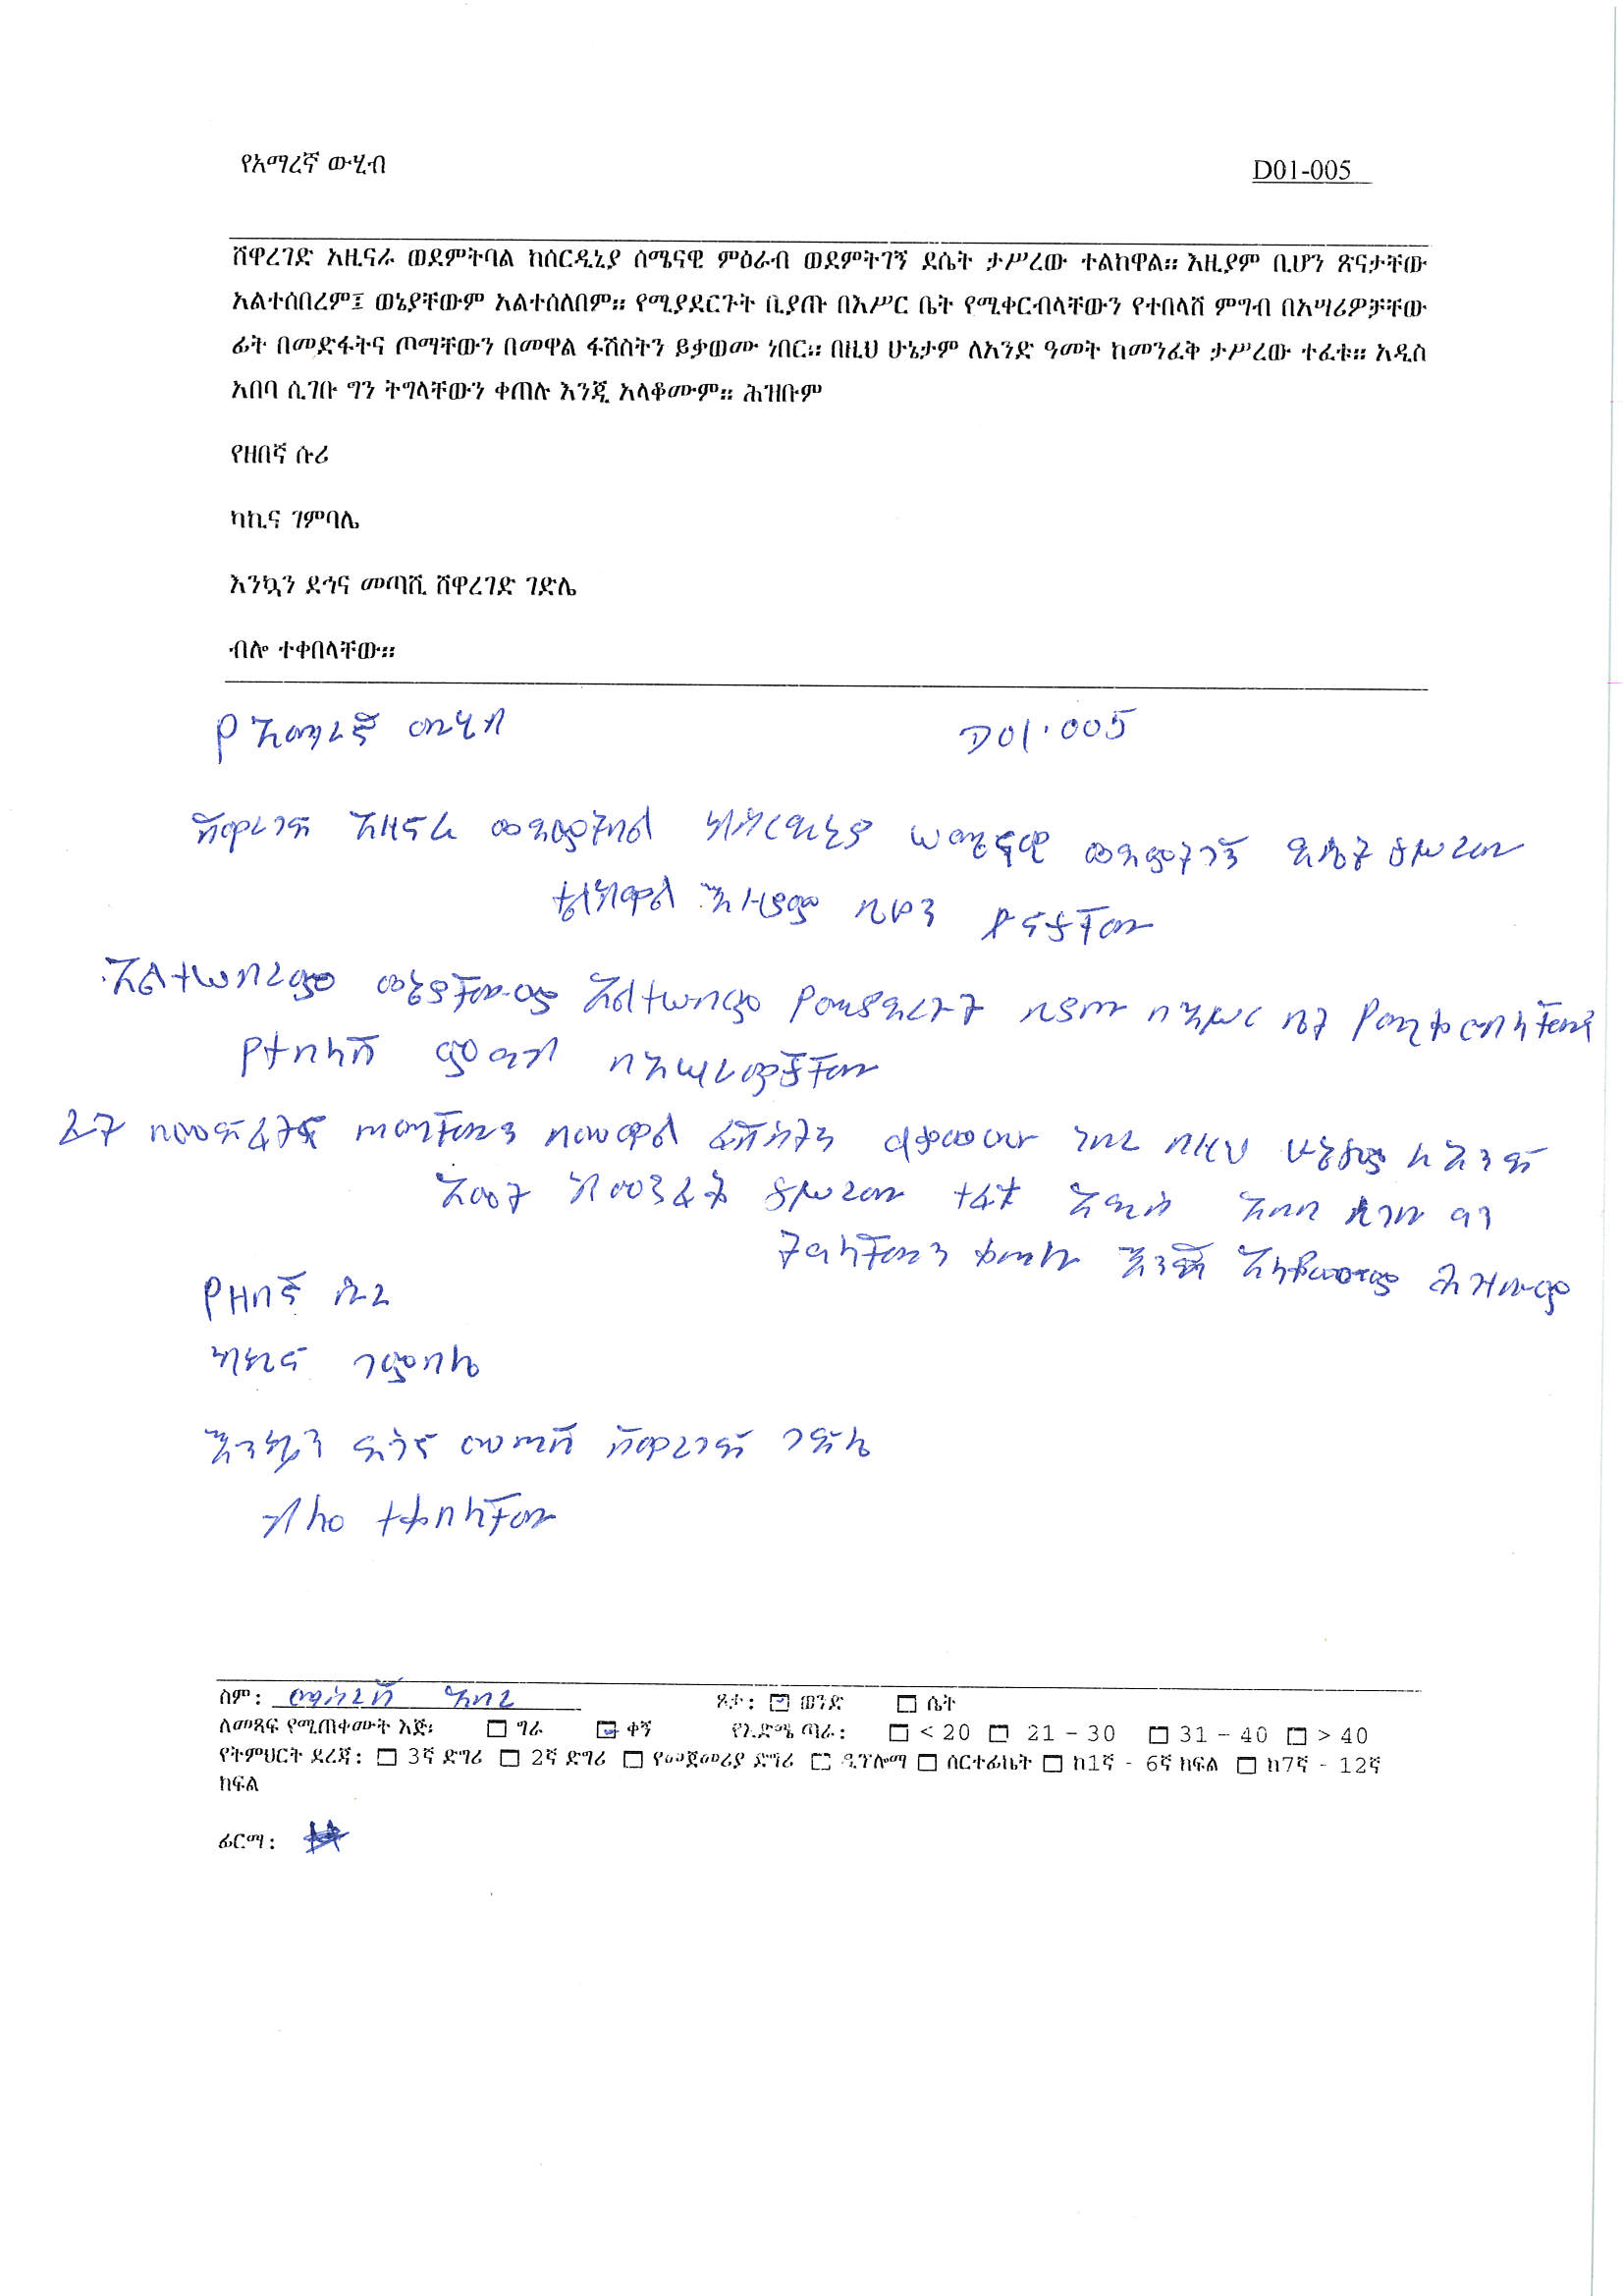 የአማረኛ ውሂብ D01-005
ሸዋረገድ አዚናራ ወደምትባል ከሰርዲኒያ ሰሜናዊ ምዕራብ ወደምትገኝ ደሴት ታሥረው ተልከዋል። እዚያም ቢሆን ጽናታቸው
አልተሰበረም፤ ወኔያቸውም አልተሰለበም። የሚያደርጉት ቢያጡ በእሥር ቤት የሚቀርብላቸውን የተበላሸ ምግብ በአሣሪዎቻቸው
ፊት በመድፋትና ጦማቸውን በመዋል ፋሽስትን ይቃወሙ ነበር። በዚህ ሁኔታም ለአንድ ዓመት ከመንፈቅ ታሥረው ተፈቱ። አዲስ
አበባ ሲገቡ ግን ትግላቸውን ቀጠሉ እንጂ አላቆሙም። ሕዝቡም
የዘበኛ ሱሪ
ካኪና ገምባሌ
እንኳን ደኅና መጣሺ ሸዋረገድ ገድሌ
ብሎ ተቀበላቸው።
የአማረኛ ውሂብ D01.005
ሸዋረገድ አዚናራ ወደምትባል ካሰርዲኒያ ሠሜናዊ ወደምትገኝ ደሴት ታሥረው
ተልከዋል እዚያም ቢሆን ጽናታቸው
አልተሠበረም ወኔያቸውም አልተሠበም የሚያደርጉት ቢያጡ በእሥር ቤት የሚቀርብላቸውን
የተበላሸ ምግብ በአሣሪዎቻቸው
ፊት በመድፋትና ጦማቸውን በመዋል ፋሽስትን ይቃወሙ ነበር በዚህ ሁኔታም ለአንድ
አመት ከመንፈቅ ታሥረው ተፈቱ አዲስ አበባ ሲገቡ ግን
ትግላቸውን ቀጠሉ እንጂ አላቆሙም ሕዝቡም
የዘበኛ ሱሪ
ካኪና ገምባሌ
እንኳን ደኅና መጣሽ ሸዋረገድ ገድሌ
ብሎ ተቀበላቸው
ስም: መማስረሻ አበረ ጾታ: ወንድ ሴት
ለመጻፍ የሚጠቀሙት እጅ: ግራ ቀኝ የእድሜ ጣራ: < 20 21 – 30 31 – 40 > 40
የትምህርት ደረጃ: 3ኛ ድግሪ 2ኛ ድግሪ የመጀመሪያ ድግሪ ዲፕሎማ ሰርተፊኬት ከ1ኛ - 6ኛ ክፍል ከ7ኛ - 12ኛ
ክፍል
ፊርማ: